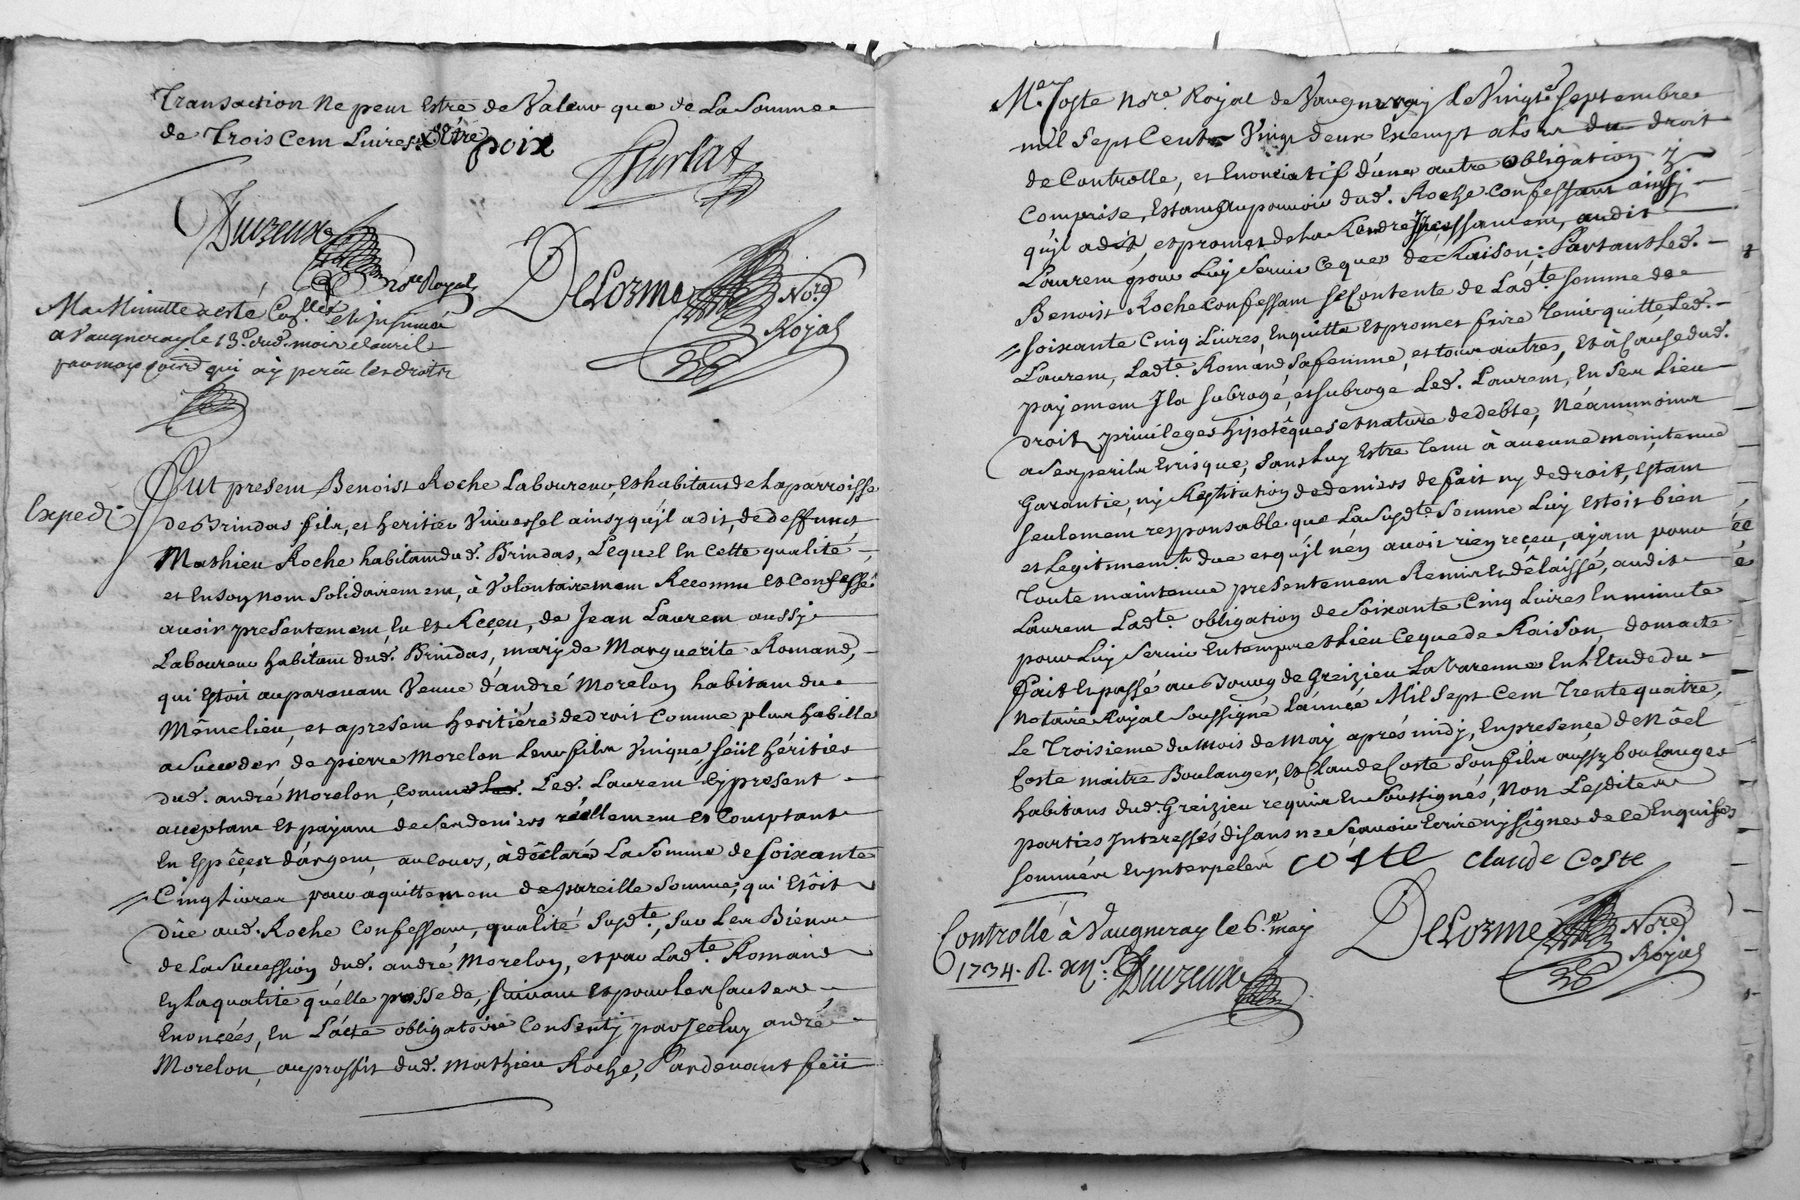 Transaction ne peut Estre de Valeur que de La Somme
de Trois Cent Livres
poix
Parlat
Duvzeux
nore Royal
DeLorme Nore
Royal
Ma Minutte a esté Collee et insinué
a Vaugneray le 13e dud. mois d'avril
par moy qui ay perçu les droits
Expedi
Fut present Benoist Roche Laboureur, et habitant de La parroisse
de Brindas fils, et heritier Universel ainsy qu'jl a dit, de deffunct
Mathieu Roche habitant dud. Brindas, Lequel En Cette qualité
et En son nom Solidairement, à Volontairement Reconnu et Confessé
avoir presentement Eu et Reçeu, de Jean Laurent aussy
Laboureur habitant dud. Brindas, mary de Marguerite Romand,
qui Estoit auparavant Veuve d'andré Morelon habitant du
Même lieu, et apresent heritiére de droit Comme plus habille
a Succeder de pierre Morelon Leur fils Unique, seül héritier
dud. andré Morelon, Comme Led. Laurent Cy present
acceptant Et payant de Ses deniers réëllement et Comptant
En Espêçes d'argent, au Cours, à dêclaré La Somme de soixante
Cinq Livres pour aquittement de pareille Somme, qui Etôit
düe aud. Roche Confessant, qualité Susdte, Sur Les Biéns
de La Succession dud. andré Morelon, et par Ladte Romand
En La qualité qu'elle possede, suivant et pour les Causes
Enonçées, En L'acte obligatoire Consenty par Jceluy andré
Morelon, au proffit dud. Mathieu Roche, Pardevant feü
Me Joste Nore Royal de Vaugneray le Vingt Septembre
mil Sept Cent Vingt deux Exempt alors du droit
de Controlle, et Enonciatif d'une autre obligation y
Comprise, Estant au pouvoir dud. Roche Confessant ainsy
qu'jl a dit, et promet de La Rendre Jncessament, audit
Laurent pour Luy Servir Ce que de Raison: Partant Led.
Benoist Roche Confessant Se Contente de Ladte Somme de
soixante Cinq Livres, En quitte Et promet faire Tenir quitte Led.
Laurent, Ladte Romand Sa femme, et tour autres, Et à Cause dud.
payement Jl a Subrogé, et Subroge Led. Laurent, En Ses Lieu
droit, priviléges hipotêques et nature de debte, Néantmoins
a Ses perils et risque, Sans Luy Estre Tenu à aucune maintenue
Garantie, ny Restitution de deniers de fait ny de droit, Estant
Seulement responsable que La Susdte Somme Luy Estoit bien
et Legitimemt due et qu'jl n'en avoit rien reçeu, ayant pour
Toute maintenue presentement Remis Et dêlaissé, audit
Laurent Ladte obligation de Soixante Cinq Livres En minute
pour Luy Servir En temps et Lieu Ce que de Raison, dont acte
Fait Et passé au Bourg de Greizieu La Varenne En L'Etude du
Notaire Royal Soussigné L'année Mil Sept Cent Trente quatre,
Le Troisieme du Mois de May aprés midy, En presence de Nôel
Coste maitre Boulanger, et Claude Coste Son fils aussy boulanger
habitans dud. Greizieu requis Et Soussignés, Non Lesdites
parties Jnteressés disans ne Sçavoir Ecrire ny Signer de ce Enquises
Sommés Et Jnterpelés coste Claude Coste
Controllé à Vaugneray le 6e may
1734. R. xij s. Duvzeux
DeLorme Nore
Royal